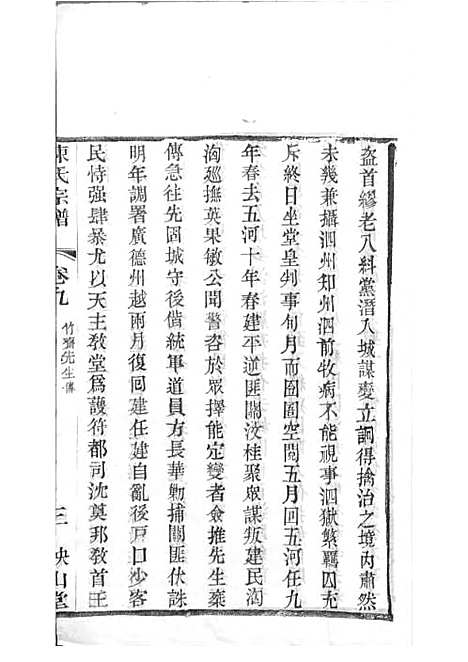 盜首繆老八糾黨潛入城謀變立詗得擒治之境內肅然
未幾兼攝泗州知州泗前牧病不能視事泗獄繫羈囚充
斥終日坐堂皇判事旬月而囹圄空閱五月回五河任九
年春去五河十年春建平逆匪闞汶桂聚眾謀叛建民洶
洶廵撫英果敏公聞警咨於眾擇能定變者僉推先生檄
傳急往先固城守後偕統軍道員方長華勦捕闞匪伏誅
明年調署廣德州越兩月復回建任建自亂後戸口沙客
民恃强肆暴尤以天主敎堂爲護符都司沈莫邦敎首王
陳氏宗譜
卷九
竹齋先生傳
三
映山堂